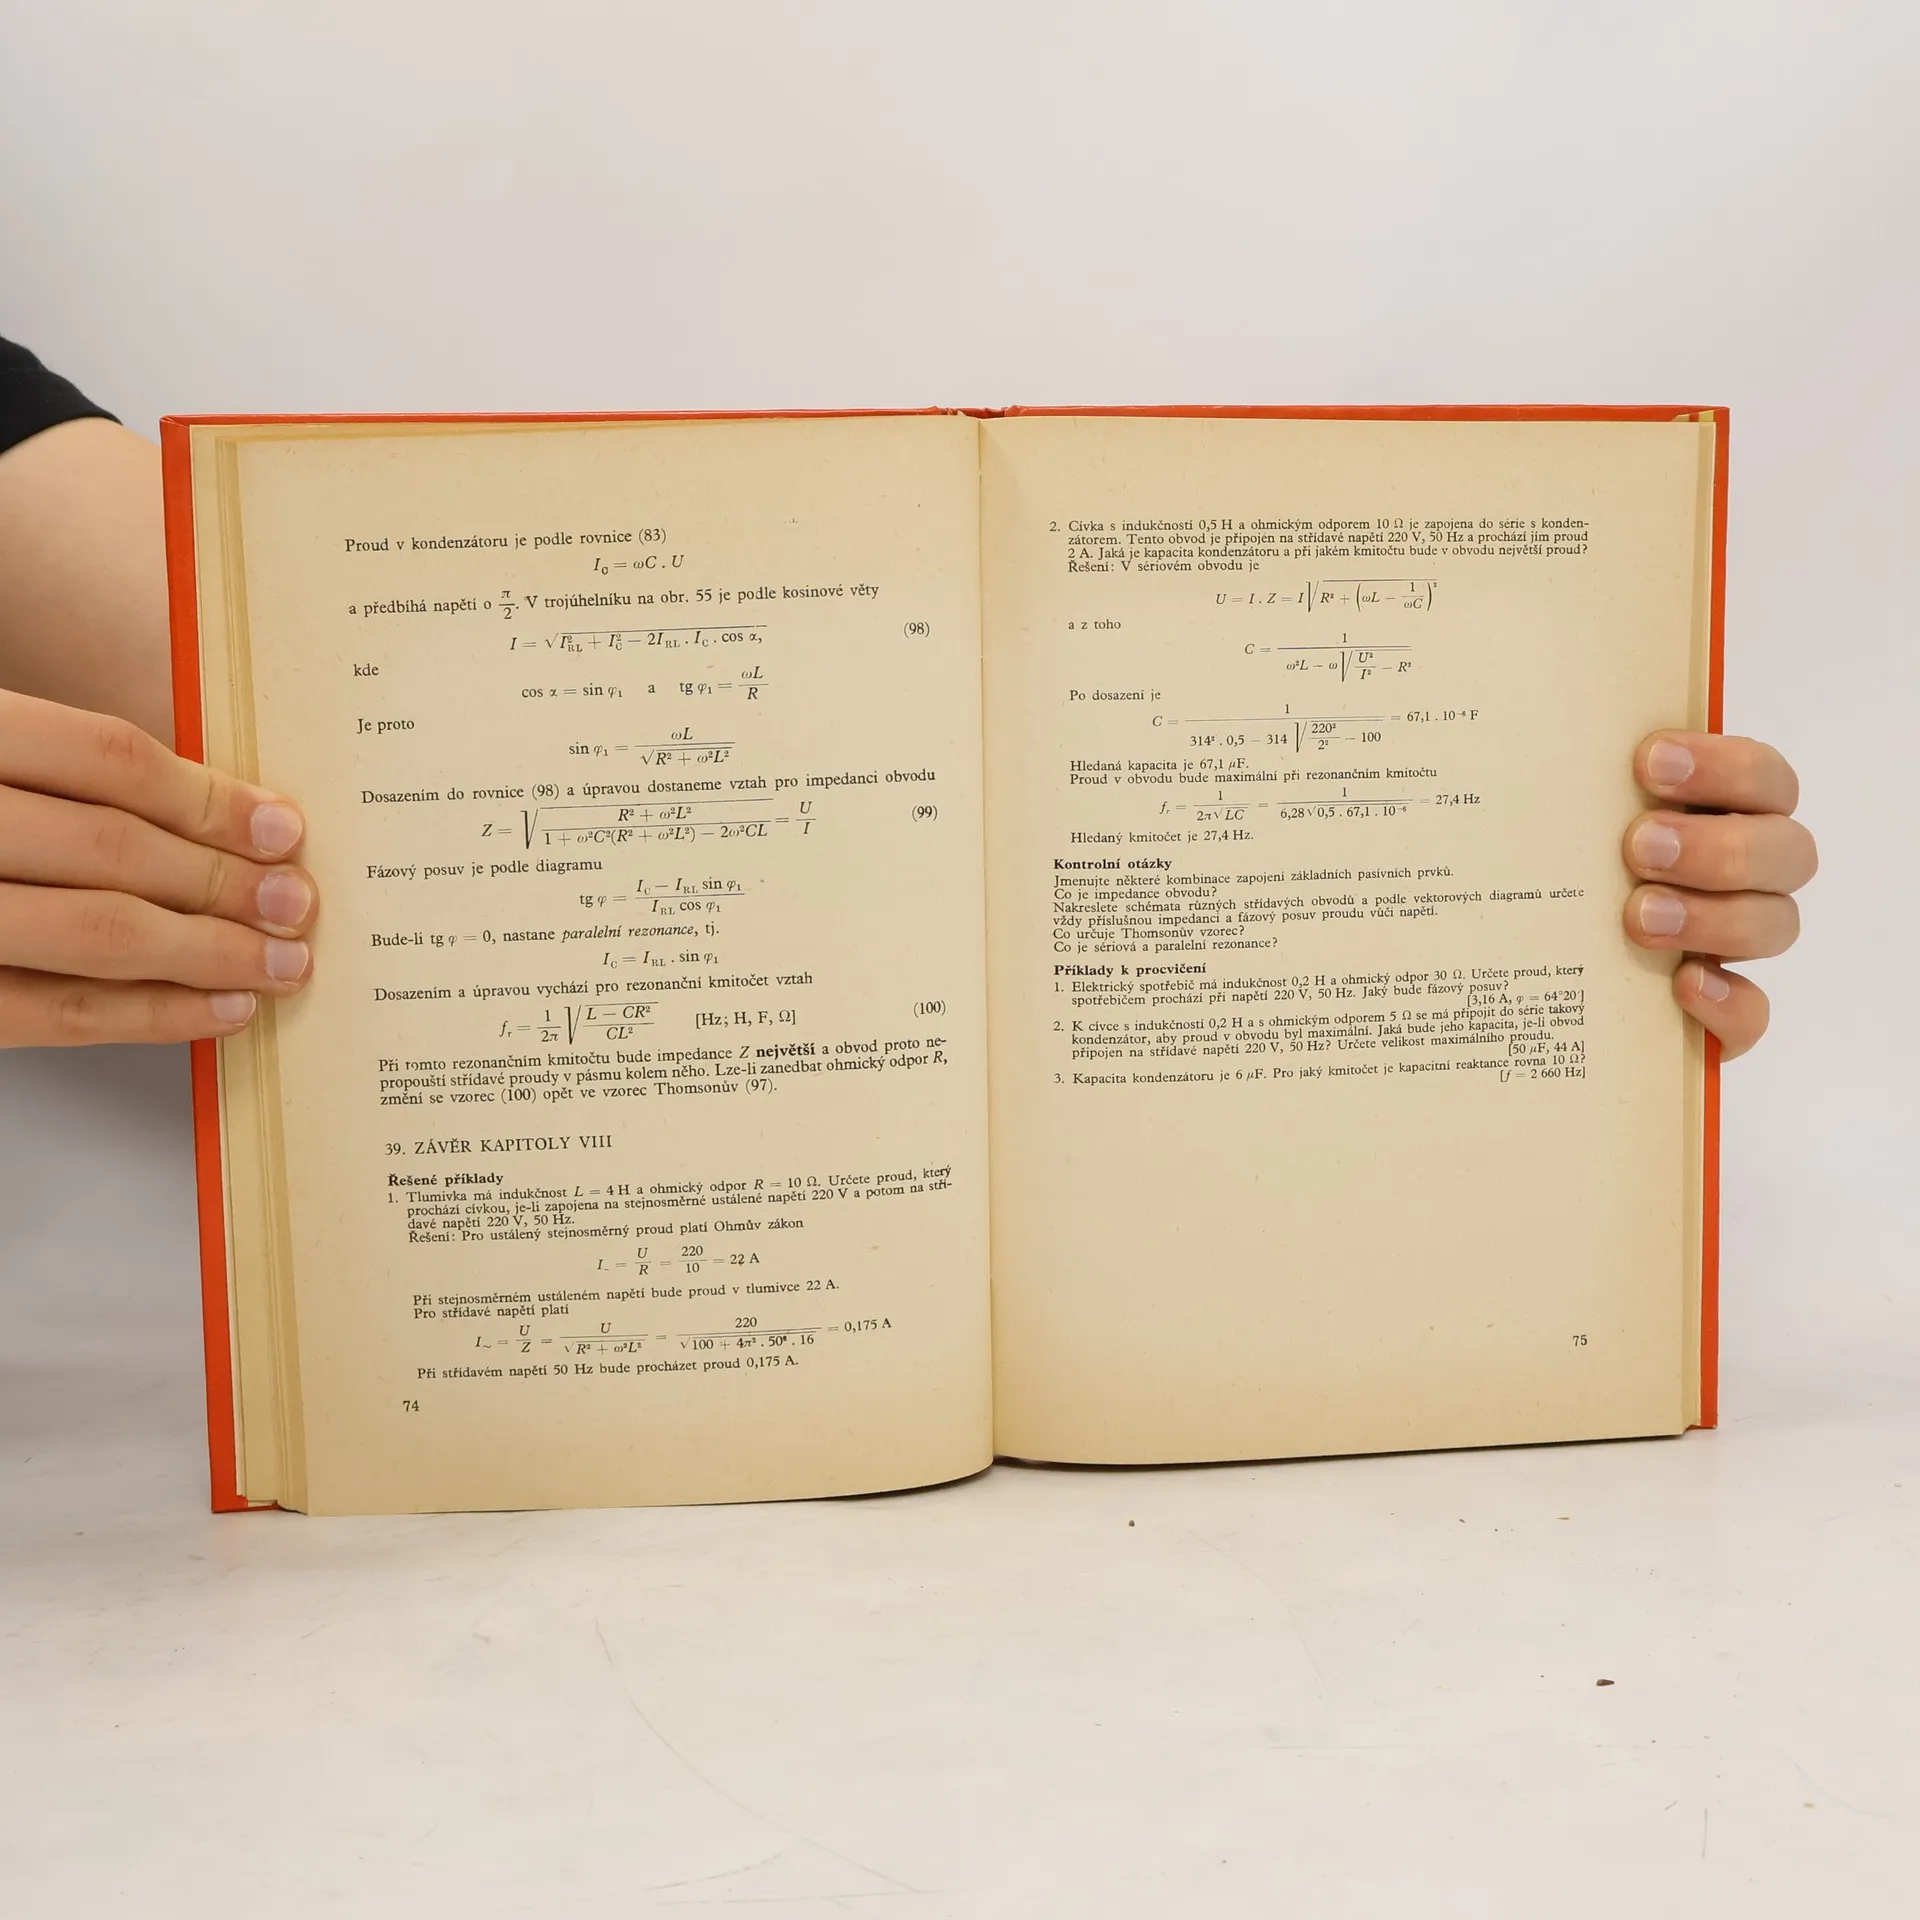 Proud v kondenzátoru je podle rovnice (83)
I_C = ωC . U
a předbíhá napětí o π/2. V trojúhelníku na obr. 55 je podle kosinové věty
I = √(I²_RL + I²_C − 2I_RL . I_C . cos α, (98)
kde
cos α = sin φ₁ a tg φ₁ = ωL/R
Je proto
sin φ₁ = ωL/√(R² + ω²L²)
Dosazením do rovnice (98) a úpravou dostaneme vztah pro impedanci obvodu
Z = √((R² + ω²L²)/(1 + ω²C²(R² + ω²L²) − 2ω²CL)) = U/I (99)
Fázový posuv je podle diagramu
tg φ = (I_C − I_RL sin φ₁)/(I_RL cos φ₁)
Bude-li tg φ = 0, nastane paralelní rezonance, tj.
I_C = I_RL . sin φ₁
Dosazením a úpravou vychází pro rezonanční kmitočet vztah
f_r = 1/2π √((L − CR²)/CL²) [Hz; H, F, Ω] (100)
Při tomto rezonančním kmitočtu bude impedance Z největší a obvod proto ne-
propouští střídavé proudy v pásmu kolem něho. Lze-li zanedbat ohmický odpor R,
změní se vzorec (100) opět ve vzorec Thomsonův (97).
39. ZÁVĚR KAPITOLY VIII
Řešené příklady
1. Tlumivka má indukčnost L = 4 H a ohmický odpor R = 10 Ω. Určete proud, který
prochází cívkou, je-li zapojena na stejnosměrné ustálené napětí 220 V a potom na stří-
davé napětí 220 V, 50 Hz.
Řešení: Pro ustálený stejnosměrný proud platí Ohmův zákon
I₋ = U/R = 220/10 = 22 A
Při stejnosměrném ustáleném napětí bude proud v tlumivce 22 A.
Pro střídavé napětí platí
I∼ = U/Z = U/√(R² + ω²L²) = 220/√(100 + 4π² . 50² . 16) = 0,175 A
Při střídavém napětí 50 Hz bude procházet proud 0,175 A.
74
2. Cívka s indukčností 0,5 H a ohmickým odporem 10 Ω je zapojena do série s konden-
zátorem. Tento obvod je připojen na střídavé napětí 220 V, 50 Hz a prochází jím proud
2 A. Jaká je kapacita kondenzátoru a při jakém kmitočtu bude v obvodu největší proud?
Řešení: V sériovém obvodu je
U = I . Z = I √(R² + (ωL − 1/ωC)²)
a z toho
C = 1/(ω²L − ω √(U²/I² − R²))
Po dosazení je
C = 1/(314² . 0,5 − 314 √(220²/2² − 100)) = 67,1 . 10⁻⁶ F
Hledaná kapacita je 67,1 μF.
Proud v obvodu bude maximální při rezonančním kmitočtu
f_r = 1/(2π√LC) = 1/(6,28√(0,5 . 67,1 . 10⁻⁶)) = 27,4 Hz
Hledaný kmitočet je 27,4 Hz.
Kontrolní otázky
Jmenujte některé kombinace zapojení základních pasívních prvků.
Co je impedance obvodu?
Nakreslete schémata různých střídavých obvodů a podle vektorových diagramů určete
vždy příslušnou impedanci a fázový posuv proudu vůči napětí.
Co určuje Thomsonův vzorec?
Co je sériová a paralelní rezonance?
Příklady k procvičení
1. Elektrický spotřebič má indukčnost 0,2 H a ohmický odpor 30 Ω. Určete proud, který
spotřebičem prochází při napětí 220 V, 50 Hz. Jaký bude fázový posuv?
[3,16 A, φ = 64°20′]
2. K cívce s indukčností 0,2 H a s ohmickým odporem 5 Ω se má připojit do série takový
kondenzátor, aby proud v obvodu byl maximální. Jaká bude jeho kapacita, je-li obvod
připojen na střídavé napětí 220 V, 50 Hz? Určete velikost maximálního proudu.
[50 μF, 44 A]
3. Kapacita kondenzátoru je 6 μF. Pro jaký kmitočet je kapacitní reaktance rovna 10 Ω?
[f = 2 660 Hz]
75